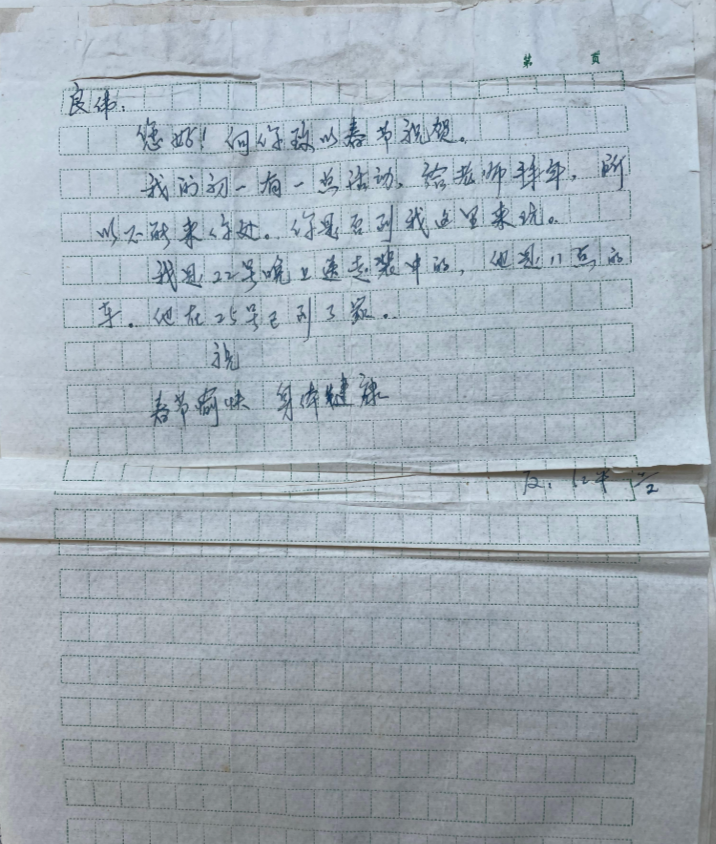 第 页
良伟：
您好！向你致以春节祝贺。
我的初一有一点活动，给老师拜年，所
以不能来你处。你是否到我这里来玩。
我是22号晚上送走裴中的，他是11点的
车。他在25号已到了家。
祝
春节愉快 身体健康
友：